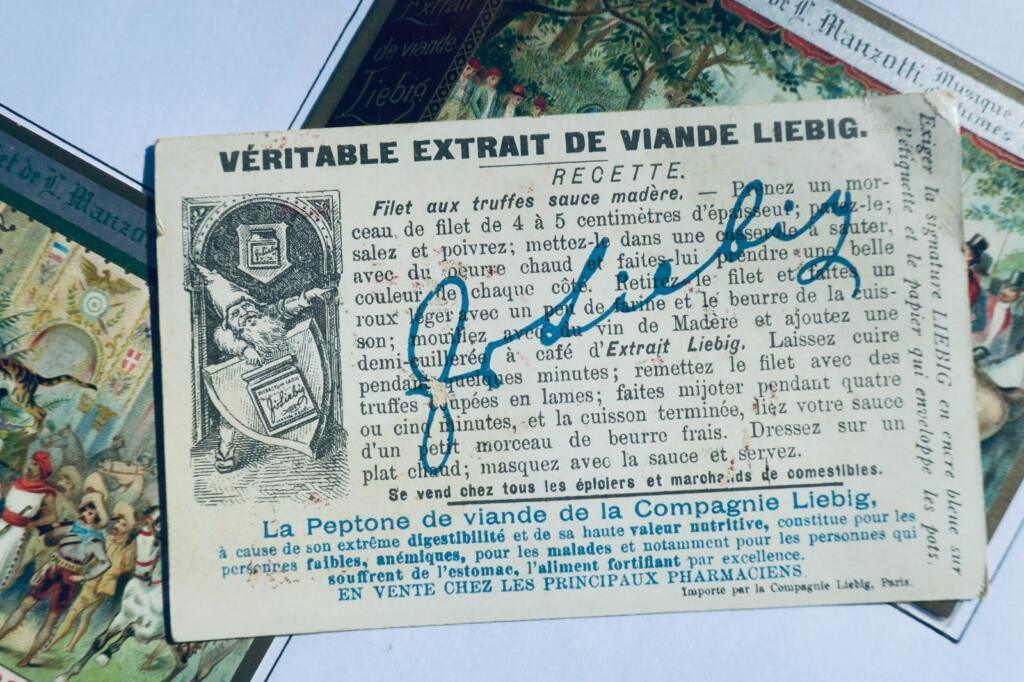 Extrait
de viande
Liebig
de L. Manzotti, Musique
VÉRITABLE EXTRAIT DE VIANDE LIEBIG.
RECETTE.
Filet aux truffes sauce madère. — Prenez un mor-
ceau de filet de 4 à 5 centimètres d'épaisseur; parez-le;
salez et poivrez; mettez-le dans une casserole à sauter,
avec du beurre chaud et faites-lui prendre une belle
couleur de chaque côté. Retirez le filet et faites un
roux léger avec un peu de farine et le beurre de la cuis-
son; mouillez avec du vin de Madère et ajoutez une
demi-cuillerée à café d'Extrait Liebig. Laissez cuire
pendant quelques minutes; remettez le filet avec des
truffes coupées en lames; faites mijoter pendant quatre
ou cinq minutes, et la cuisson terminée, liez votre sauce
d'un petit morceau de beurre frais. Dressez sur un
plat chaud; masquez avec la sauce et servez.
Se vend chez tous les épiciers et marchands de comestibles.
La Peptone de viande de la Compagnie Liebig,
à cause de son extrême digestibilité et de sa haute valeur nutritive, constitue pour les
personnes faibles, anémiques, pour les malades et notamment pour les personnes qui
souffrent de l'estomac, l'aliment fortifiant par excellence.
EN VENTE CHEZ LES PRINCIPAUX PHARMACIENS.
Importé par la Compagnie Liebig, Paris.
Exiger la signature LIEBIG en encre bleue sur
l'étiquette et le papier qui enveloppe les pots.
JvLiebig
JvLiebig
et de L. Manzo